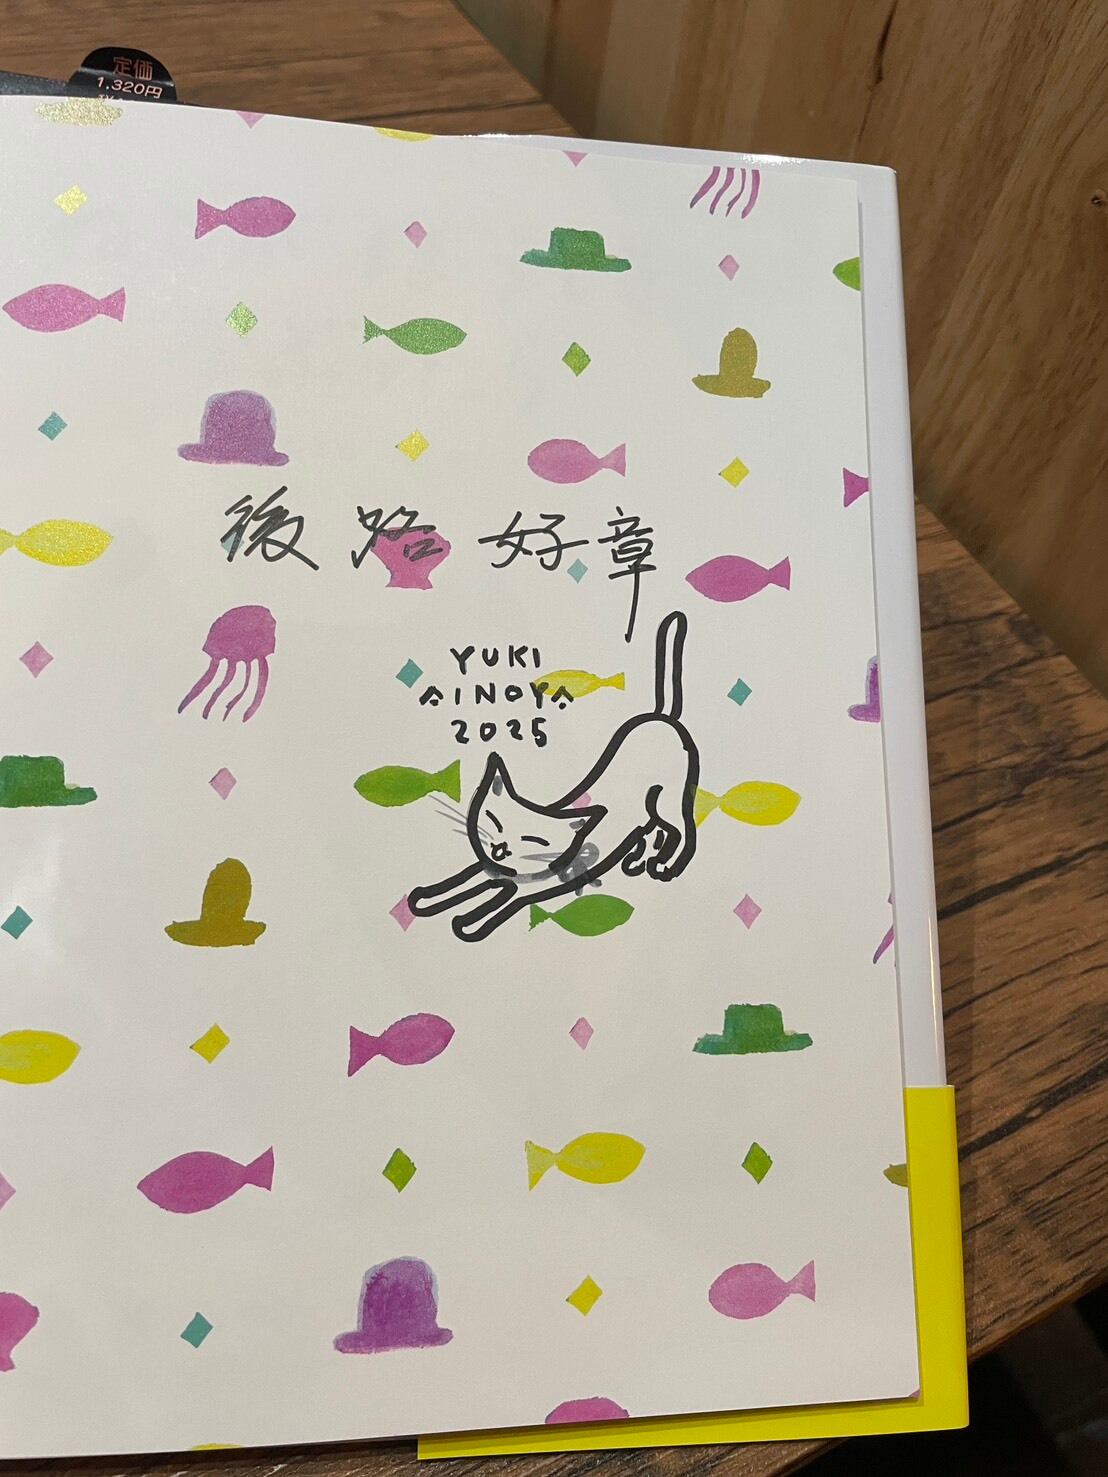 定価
1,320円
後路 好章
YUKI
AINOYA
2025